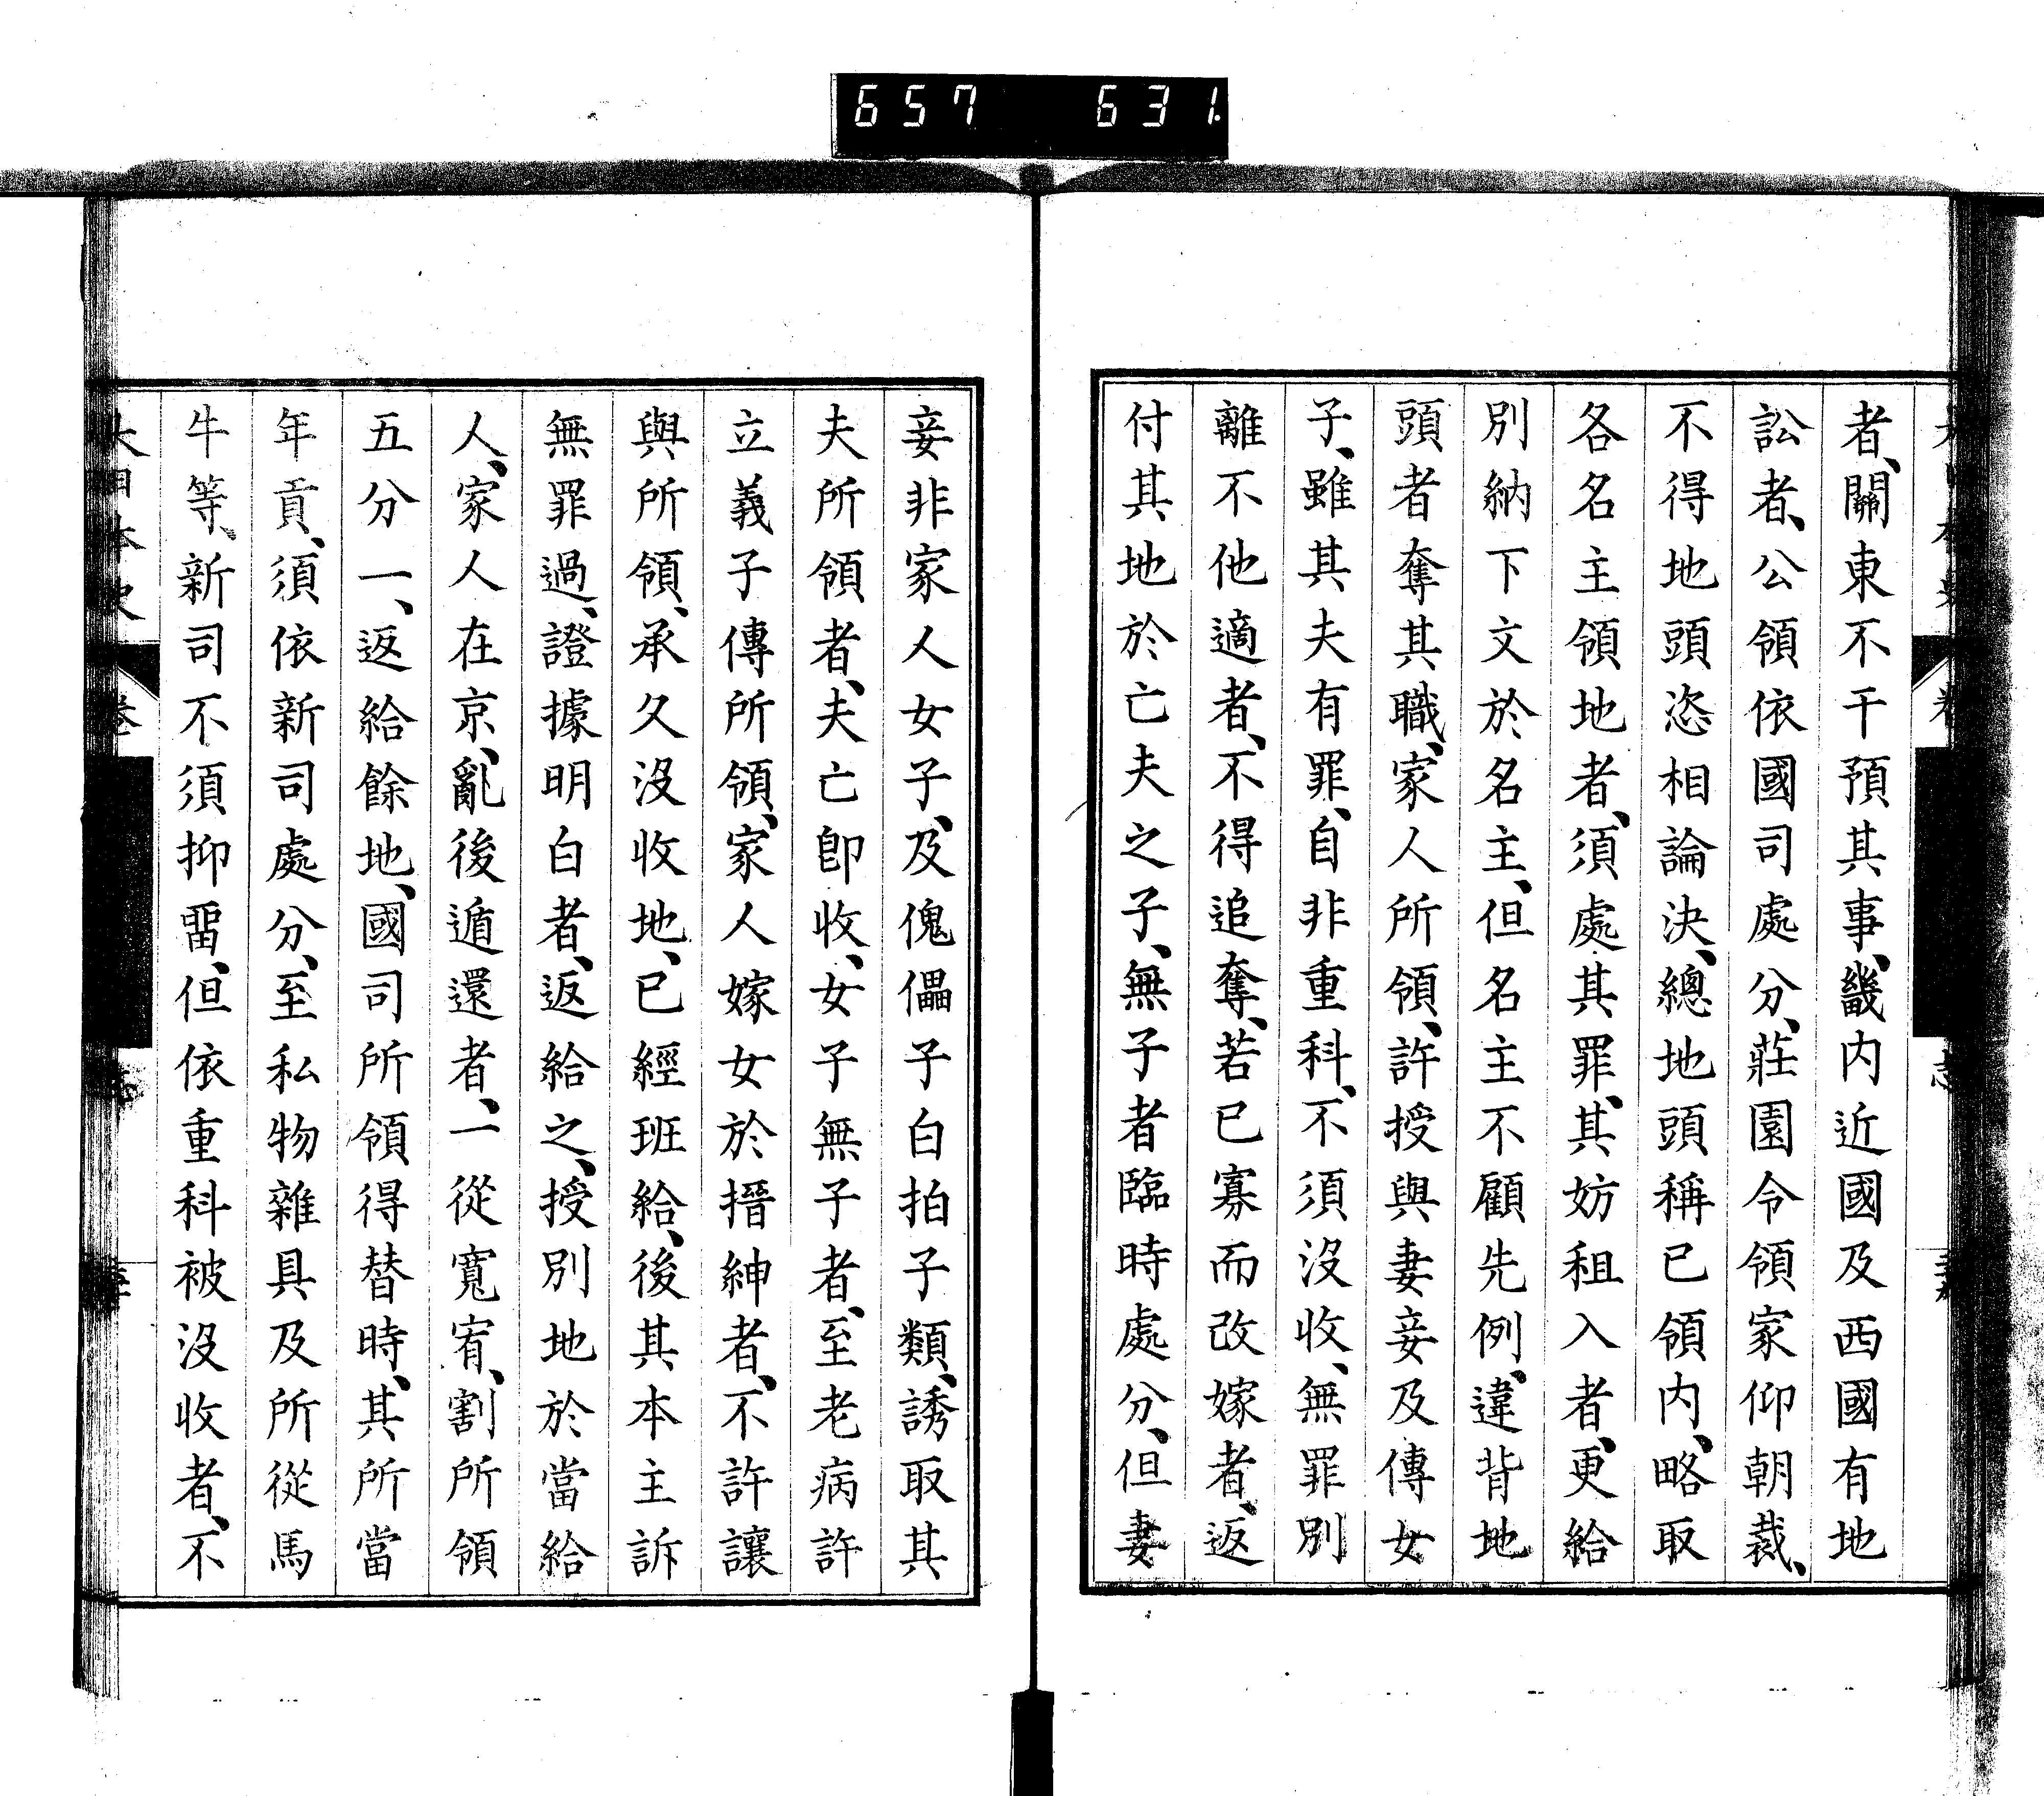 657 631
者、關東不干預其事、畿内近國及西國有地
訟者、公領依國司處分、莊園令領家仰朝裁、
不得地頭恣相論決、總地頭稱已領内、略取
各名主領地者、須處其罪、其妨租入者、更給
別納下文於名主、但名主不顧先例、違背地
頭者奪其職、家人所領、許授與妻妾及傳女
子、雖其夫有罪、自非重科、不須沒收、無罪別
離不他適者、不得追奪、若已寡而改嫁者、返
付其地於亡夫之子、無子者臨時處分、但妻
妾非家人女子、及傀儡子白拍子類、誘取其
夫所領者、夫亡卽收、女子無子者、至老病許
立義子傳所領、家人嫁女於搢紳者、不許讓
與所領、承久沒收地、已經班給、後其本主訴
無罪過、證據明白者、返給之、授別地於當給
人、家人在京、亂後遁還者、一從寬宥、割所領
五分一、返給餘地、國司所領得替時、其所當
年貢、須依新司處分、至私物雜具及所從馬
牛等、新司不須抑畱、但依重科被沒收者、不
大日本史 卷